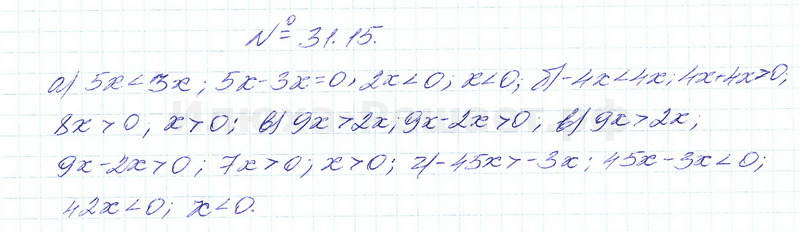 № 31.15.
а) 5x < 3x; 5x-3x=0, 2x<0; x<0; б) -4x<4x; 4x+4x>0;
8x>0, x>0; в) 9x>2x; 9x-2x>0; в) 9x>2x;
9x-2x>0; 7x>0; x>0; г) -45x>-3x; 45x-3x<0;
42x<0; x<0.